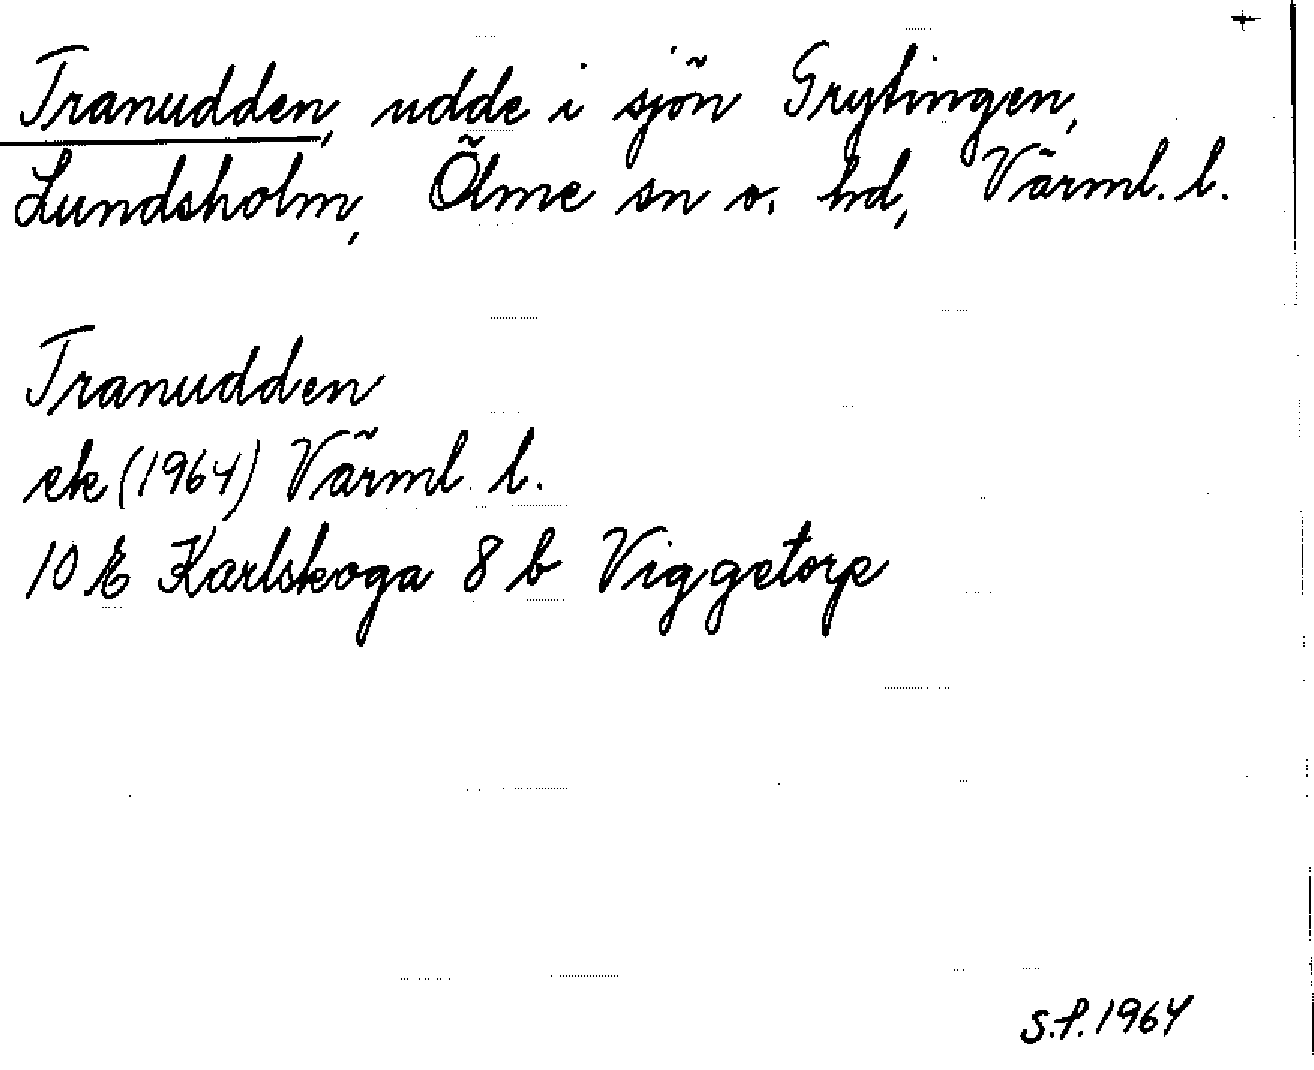 Tranudden, udde i sjön Grytingen,
Lundsholm, Ölme sn o. hd, Värml. l.
Tranudden
ek (1964) Värml. l.
10 E Karlskoga 8 b Viggetorp
S.F. 1964